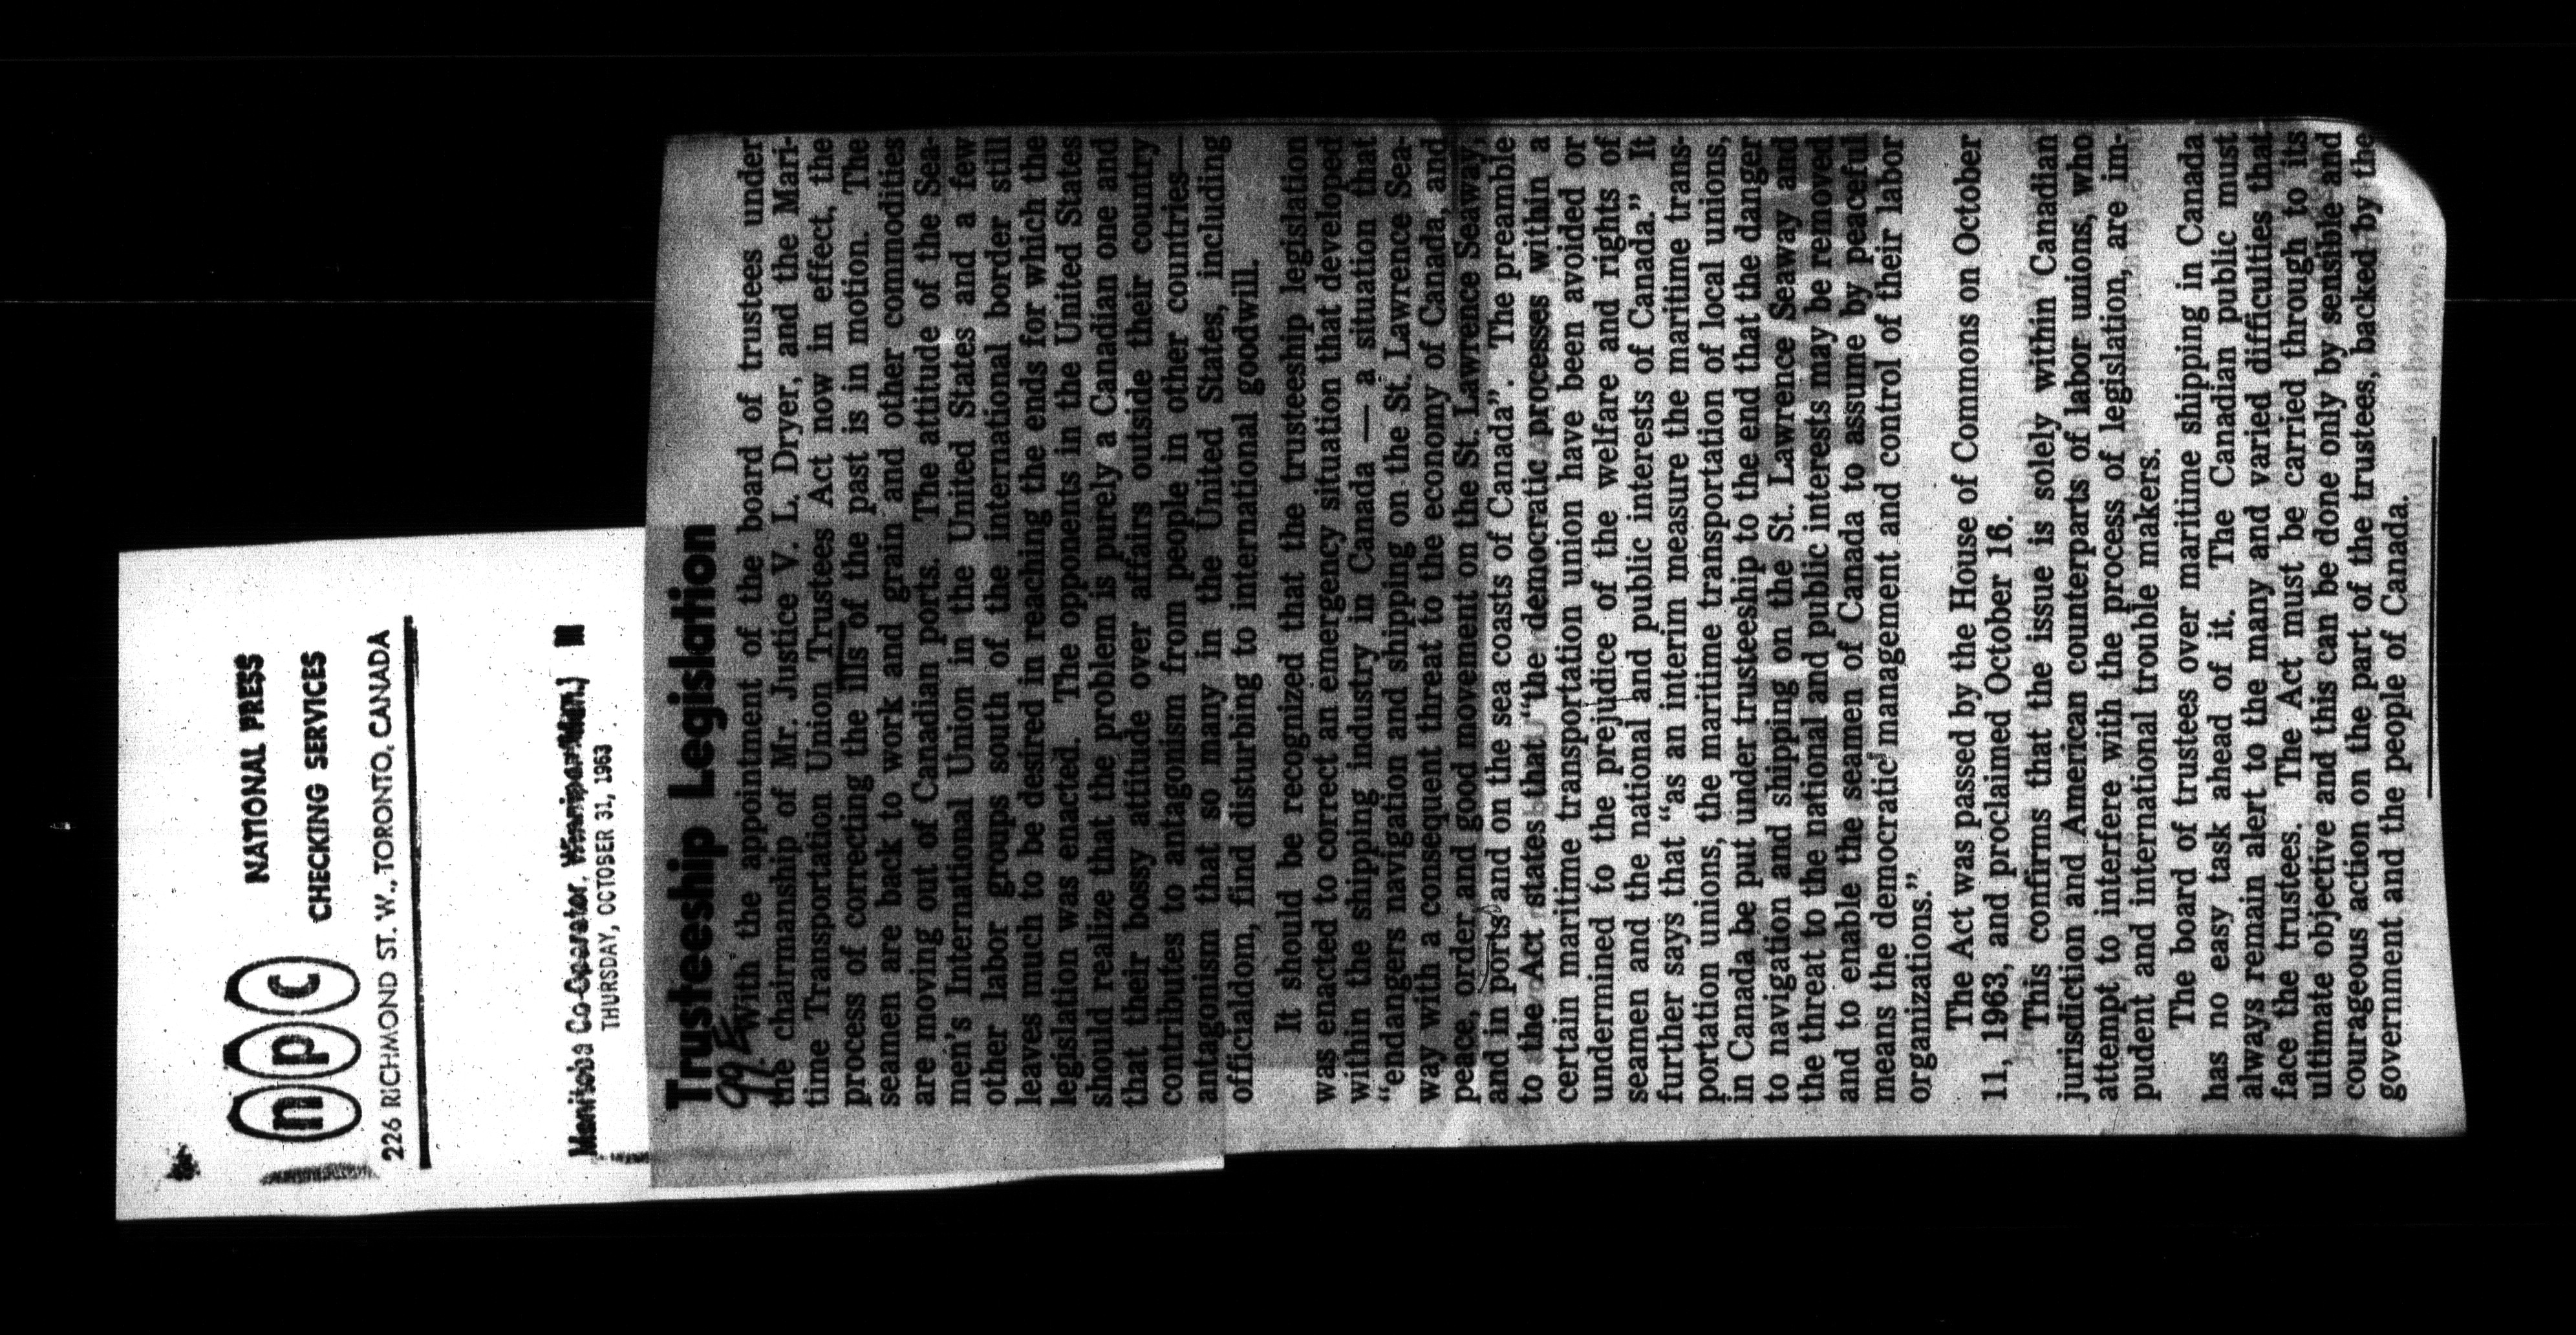 npc
NATIONAL PRESS
CHECKING SERVICES
226 RICHMOND ST. W., TORONTO, CANADA
Manitoba Co-Operator, Winnipeg (Man.)
THURSDAY, OCTOBER 31, 1963
Trusteeship Legislation
With the appointment of the board of trustees under
the chairmanship of Mr. Justice V. L. Dryer, and the Mari-
time Transportation Union Trustees Act now in effect, the
process of correcting the ills of the past is in motion. The
seamen are back to work and grain and other commodities
are moving out of Canadian ports. The attitude of the Sea-
men's International Union in the United States and a few
other labor groups south of the international border still
leaves much to be desired in reaching the ends for which the
legislation was enacted. The opponents in the United States
should realize that the problem is purely a Canadian one and
that their bossy attitude over affairs outside their country
contributes to antagonism from people in other countries—
antagonism that so many in the United States, including
officialdon, find disturbing to international goodwill.
It should be recognized that the trusteeship legislation
was enacted to correct an emergency situation that developed
within the shipping industry in Canada — a situation that
"endangers navigation and shipping on the St. Lawrence Sea-
way with a consequent threat to the economy of Canada, and
peace, order and good movement on the St. Lawrence Seaway,
and in ports and on the sea coasts of Canada". The preamble
to the Act states that "the democratic processes within a
certain maritime transportation union have been avoided or
undermined to the prejudice of the welfare and rights of
seamen and the national and public interests of Canada." It
further says that "as an interim measure the maritime trans-
portation unions, the maritime transportation of local unions,
in Canada be put under trusteeship to the end that the danger
to navigation and shipping on the St. Lawrence Seaway and
the threat to the national and public interests may be removed
and to enable the seamen of Canada to assume by peaceful
means the democratic management and control of their labor
organizations."
The Act was passed by the House of Commons on October
11, 1963, and proclaimed October 16.
This confirms that the issue is solely within Canadian
jurisdiction and American counterparts of labor unions, who
attempt to interfere with the process of legislation, are im-
pudent and international trouble makers.
The board of trustees over maritime shipping in Canada
has no easy task ahead of it. The Canadian public must
always remain alert to the many and varied difficulties that
face the trustees. The Act must be carried through to its
ultimate objective and this can be done only by sensible and
courageous action on the part of the trustees, backed by the
government and the people of Canada.